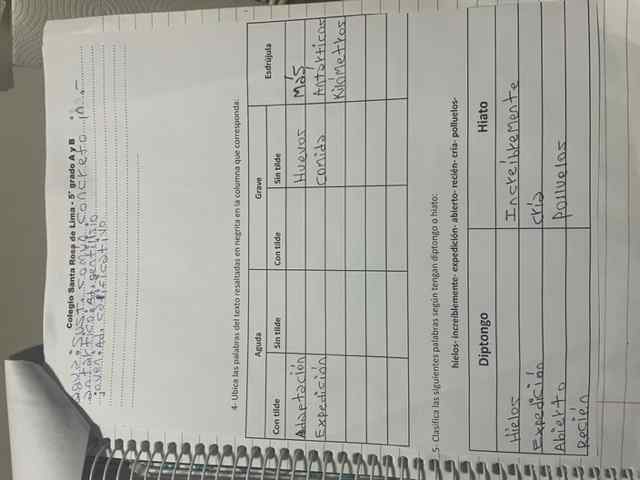 Colegio Santa Rosa de Lima - 5° grado A y B
agua: Sust. común concreto
antárticos: gentilicio
joven: Ad. calificativo
4- Ubica las palabras del texto resaltadas en negrita en la columna que corresponda:
Aguda Grave Esdrújula
Con tilde Sin tilde Con tilde Sin tilde
Adaptación Huevos más
Expedición comida Antárticas
Kilómetros
5- Clasifica las siguientes palabras según tengan diptongo o hiato:
hielos- increíblemente- expedición- abierto- recién- cría- polluelos-
Diptongo Hiato
Hielos Increíblemente
Expedición cría
Abierto polluelos
Recién